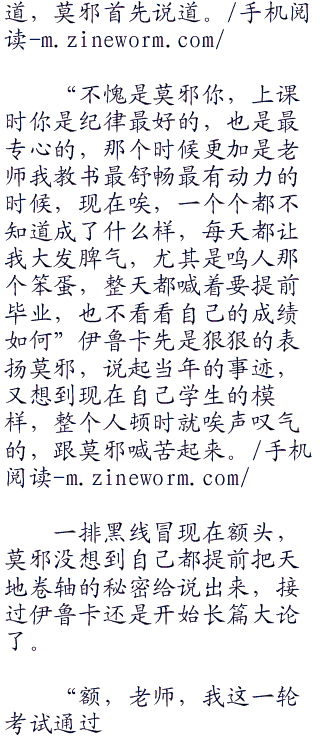 道，莫邪首先说道。/手机阅
读-m.zineworm.com/
“不愧是莫邪你，上课
时你是纪律最好的，也是最
专心的，那个时候更加是老
师我教书最舒畅最有动力的
时候，现在唉，一个个都不
知道成了什么样，每天都让
我大发脾气，尤其是鸣人那
个笨蛋，整天都喊着要提前
毕业，也不看看自己的成绩
如何”伊鲁卡先是狠狠的表
扬莫邪，说起当年的事迹，
又想到现在自己学生的模
样，整个人顿时就唉声叹气
的，跟莫邪喊苦起来。/手机
阅读-m.zineworm.com/
一排黑线冒现在额头，
莫邪没想到自己都提前把天
地卷轴的秘密给说出来，接
过伊鲁卡还是开始长篇大论
了。
“额，老师，我这一轮
考试通过